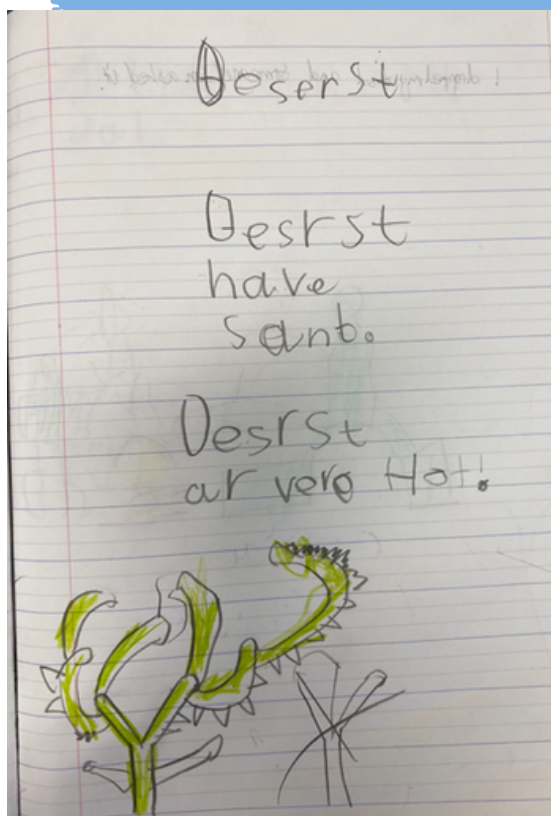 Deserst
Desrst
have
sant.
Desrst
ar vero Hot!